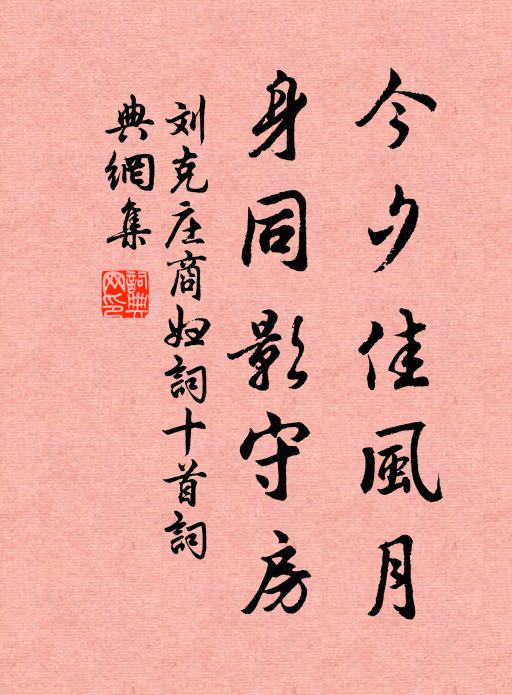 今夕佳風月
身同影守房
刘克庄商妇詞十首詞
典網集
詞典网印